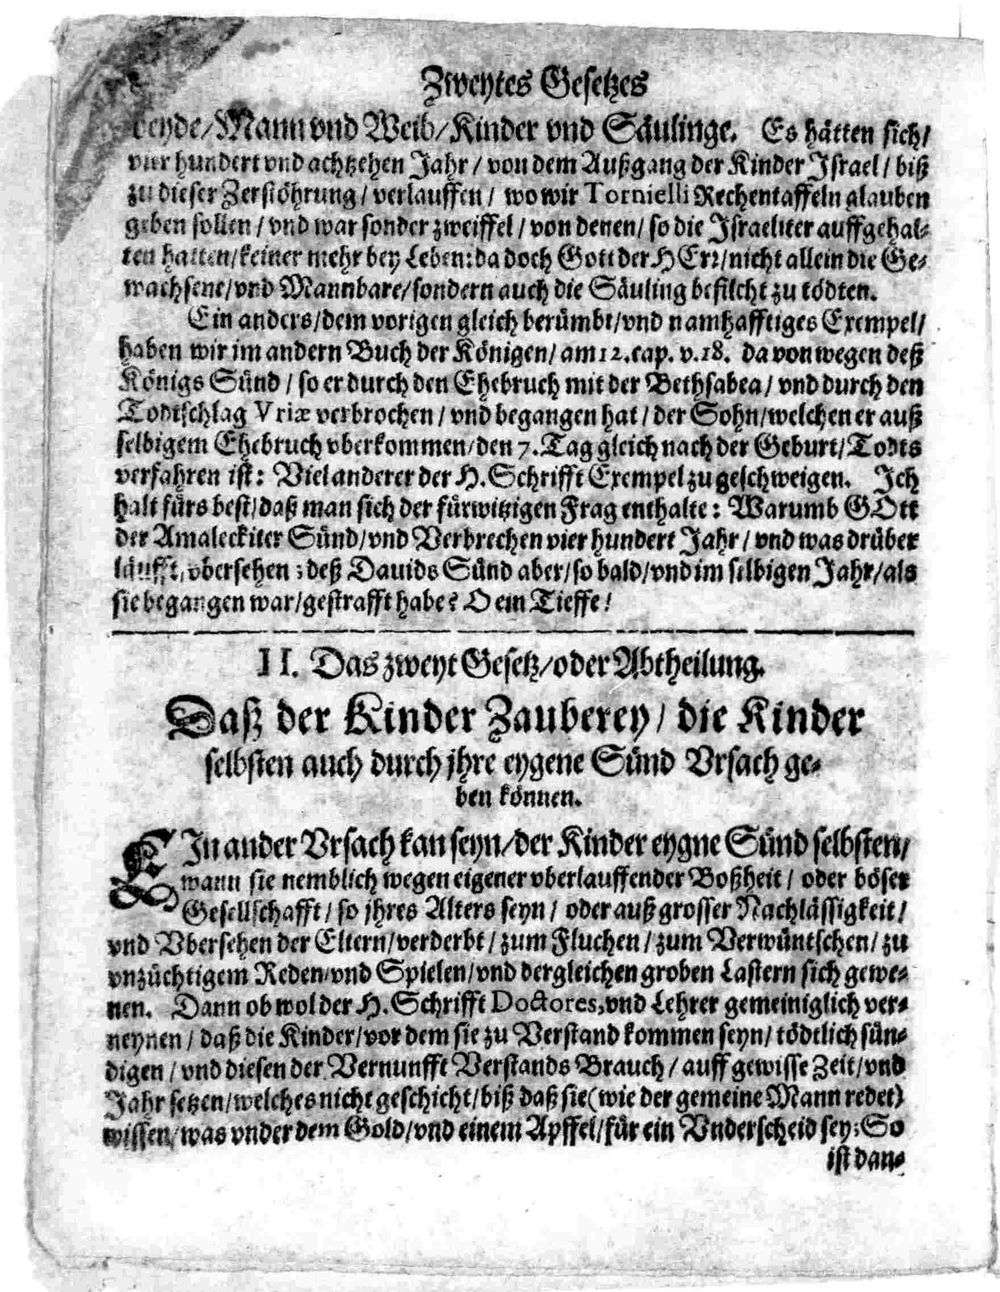 Zweytes Gesetzes
beyde/Mann vnd Weib/Kinder vnd Säulinge. Es hätten sich/
vier hundert vnd achtzehen Jahr/ von dem Außgang der Kinder Jsrael/ biß
zu dieser Zerstöhrung/ verlauffen/ wo wir Tornielli Rechentaffeln glauben
geben sollen/ vnd war sonder zweiffel/ von denen/ so die Jsraeliter auffgehal-
ten hatten/keiner mehr bey Leben: da doch Gott der HErr/nicht allein die Ge-
wachsene/vnd Mannbare/sondern auch die Säuling befilcht zu tödten.
Ein anders/dem vorigen gleich berümbt/vnd namhafftiges Exempel/
haben wir im andern Buch der Königen/ am 12. cap. v. 18. da von wegen deß
Königs Sünd/ so er durch den Ehebruch mit der Bethsabea/ vnd durch den
Todtschlag Vriæ verbrochen/ vnd begangen hat/ der Sohn/welchen er auß
selbigem Ehebruch vberkommen/den 7. Tag gleich nach der Geburt/Todts
verfahren ist: Viel anderer der H. Schrifft Exempel zu geschweigen. Jch
halt fürs best/daß man sich der fürwitzigen Frag enthalte: Warumb GOtt
der Amaleckiter Sünd/vnd Verbrechen vier hundert Jahr/ vnd was drüber
läufft/vbersehen; deß Dauids Sünd aber/so bald/vnd im selbigen Jahr/als
sie begangen war/gestrafft habe? O ein Tieffe!
II. Das zweyt Gesetz/oder Abtheilung.
Daß der Kinder Zauberey/ die Kinder
selbsten auch durch jhre eygene Sünd Vrsach ge-
ben können.
EJn ander Vrsach kan seyn/der Kinder eygne Sünd selbsten/
wann sie nemblich wegen eigener vberlauffender Boßheit/ oder böser
Gesellschafft/ so jhres Alters seyn/ oder auß grosser Nachlässigkeit/
vnd Vbersehen der Eltern/verderbt/ zum Fluchen/ zum Verwüntschen/ zu
vnzüchtigem Reden/vnd Spielen/vnd dergleichen groben Lastern sich gewe-
nen. Dann ob wol der H. Schrifft Doctores, vnd Lehrer gemeiniglich ver-
neynen/ daß die Kinder/vor dem sie zu Verstand kommen seyn/ tödtlich sün-
digen/ vnd diesen der Vernunfft Verstands Brauch/ auff gewisse Zeit/vnd
Jahr setzen/welches nicht geschicht/biß daß sie(wie der gemeine Mann redet)
wissen/was vnder dem Gold/vnd einem Apffel/für ein Vnderscheid sey: So
ist dan-